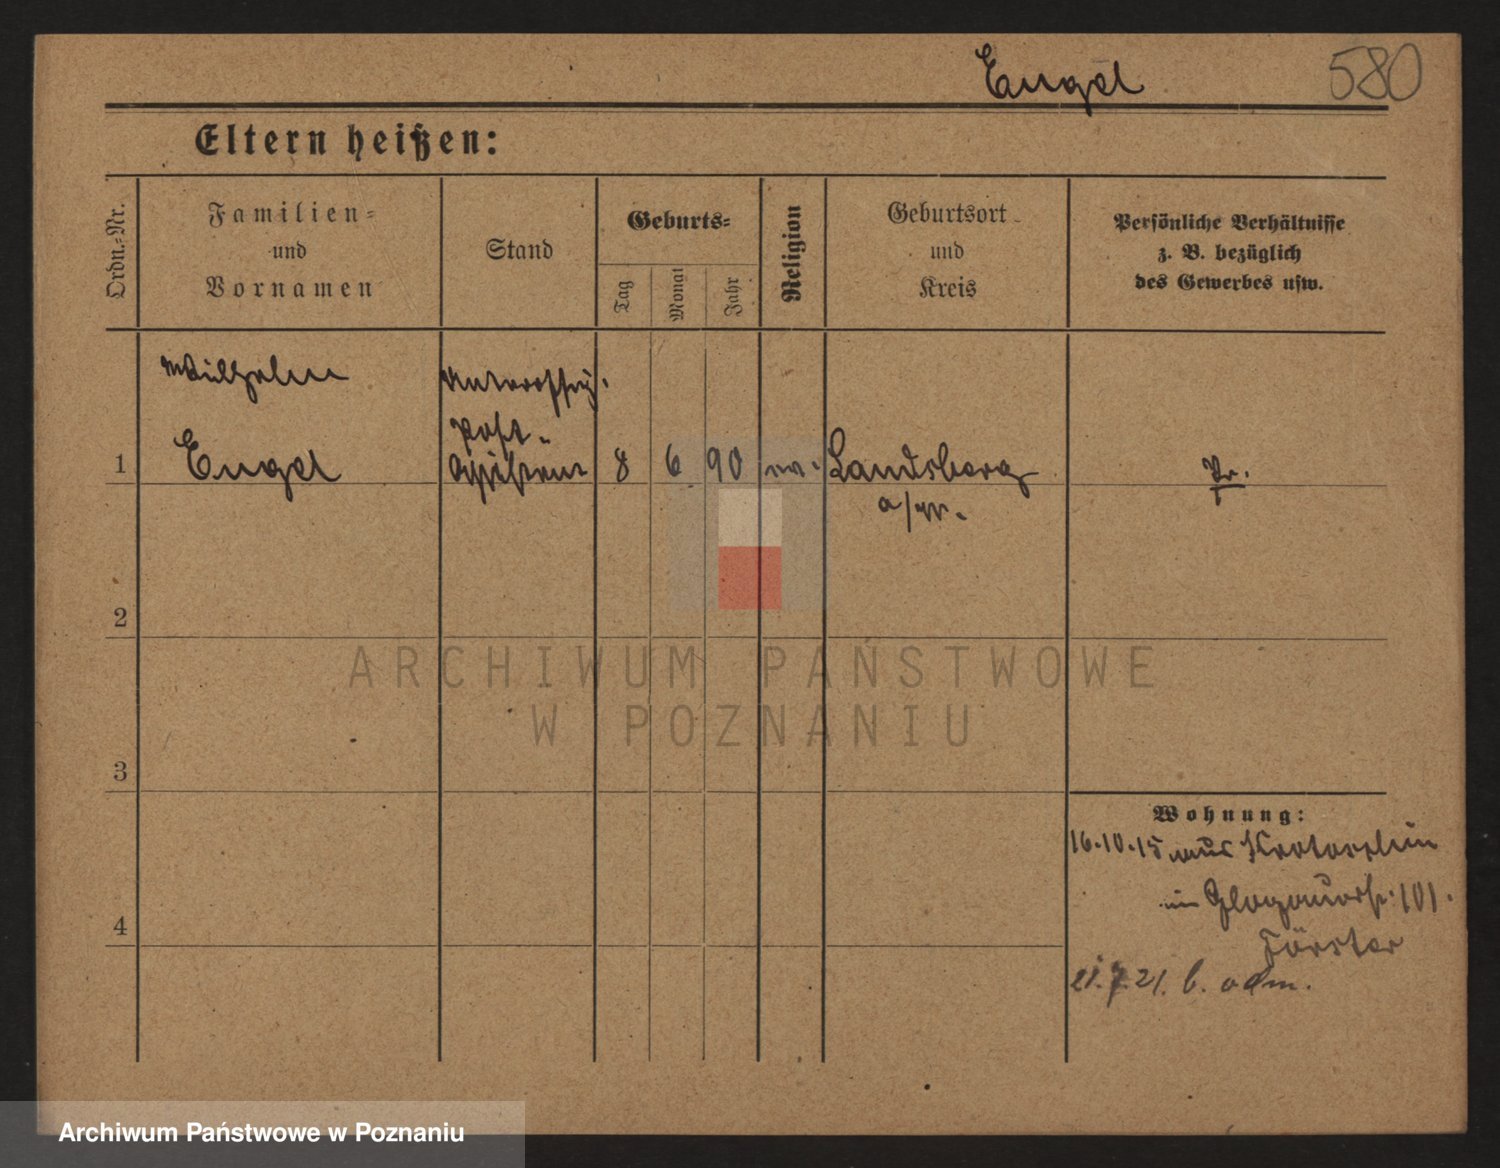 Engel
580
Eltern heißen:
Ordn.-Nr.
Familien-
und
Vornamen
Stand
Geburts-
Tag
Monat
Jahr
Religion
Geburtsort
und
Kreis
Persönliche Verhältnisse
z. B. bezüglich
des Gewerbes usw.
Wilhelm
Unteroffiz.
Post-
1 Engel Assistent 8 6 90 ev. Landsberg Pr.
a/W.
2
ARCHIWUM PAŃSTWOWE
W POZNANIU
3
Wohnung:
16.10.15 aus Krotoschin
in Glogauerstr. 101.
4
Förster
21.7.21. b. odm.
Archiwum Państwowe w Poznaniu